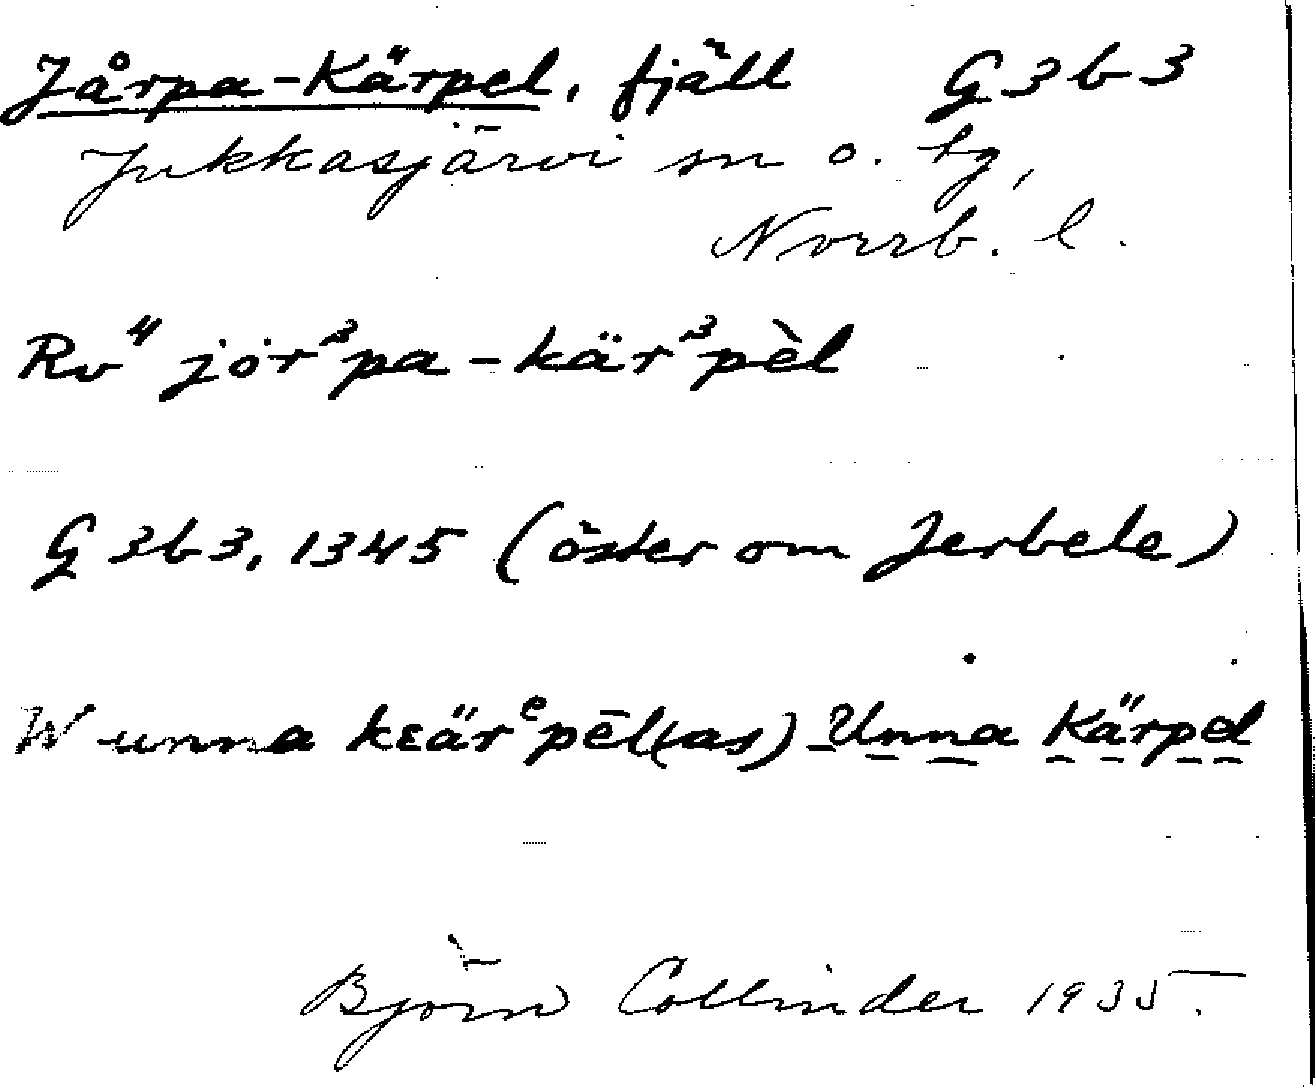 Jårpa-Kärpel, fjäll G3b3
Jukkasjärvi sn o. tg,
Norrb. l.
Rv" jòr³pa-kär³pèl
G3b3, 1345 (öster om Jerbele)
W unna kεärᵉpēl(as) Unna Kärpel
Björn Collinder 1935.